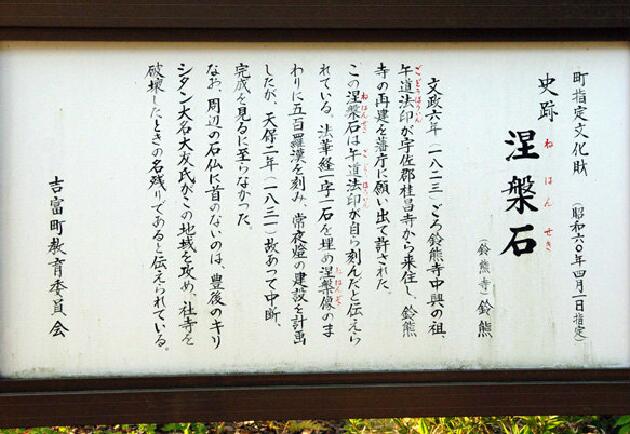 町指定文化財 (昭和六〇年四月一日指定)
史跡 涅槃石 (鈴熊寺) 鈴熊
ねはんせき
文政六年(一八二三)ごろ鈴熊寺中興の祖、
ごどうほういん
午道法印が宇佐郡桂昌寺から来住し、鈴熊
寺の再建を藩庁に願い出て許された。
この涅槃石は午道法印が自ら刻んだと伝えら
れている。法華経一字一石を埋め涅槃像のま
わりに五百羅漢を刻み、常夜燈の建設を計画
したが、天保二年(一八三一)故あって中断、
完成を見るに至らなかった。
なお、周辺の石仏に首のないのは、豊後のキリ
シタン大名大友氏がこの地域を攻め、社寺を
破壊したときの名残りであると伝えられている。
吉富町教育委員会